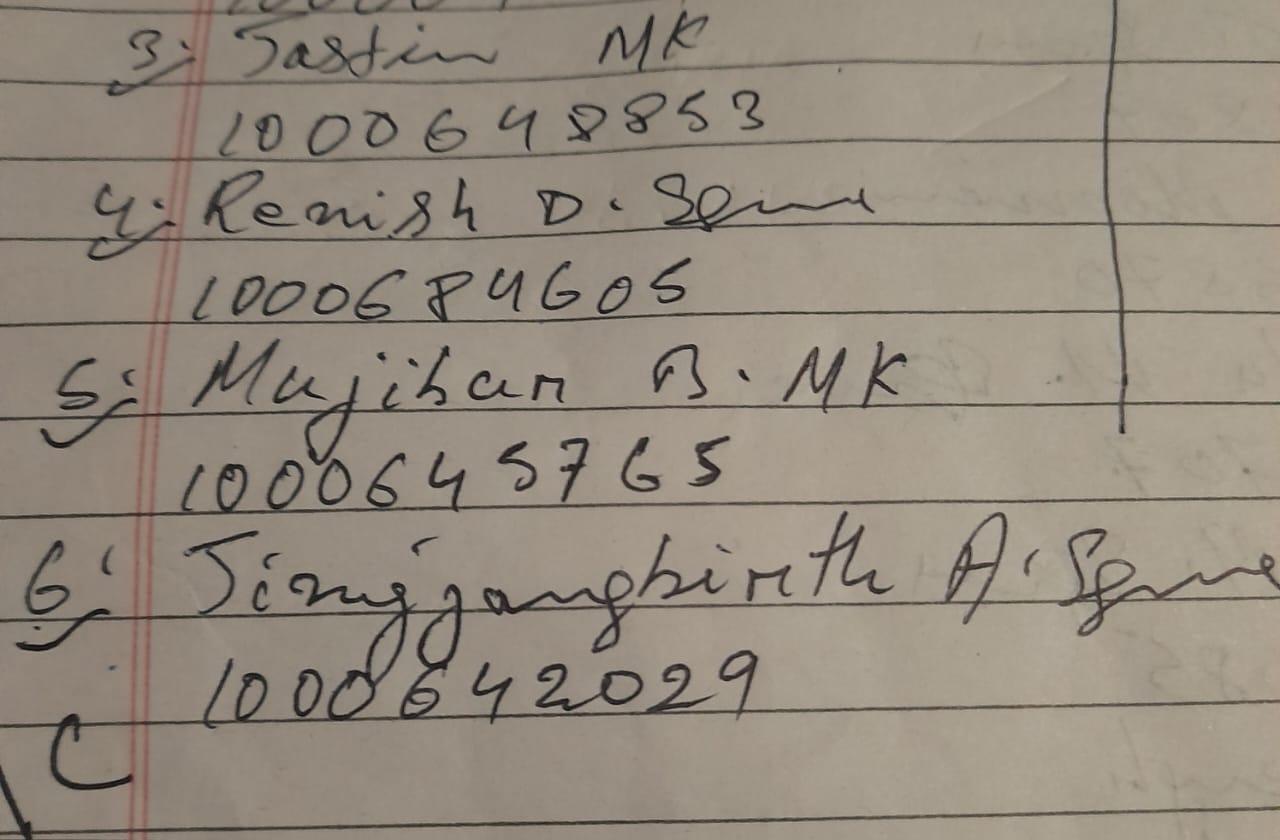 3: Jastin MK
1000648853
4: Renish D. Sgma
1000684605
5: Mujiban B. MK
1000645765
6: Jingjangbirth A. Sgma
1000642029
C